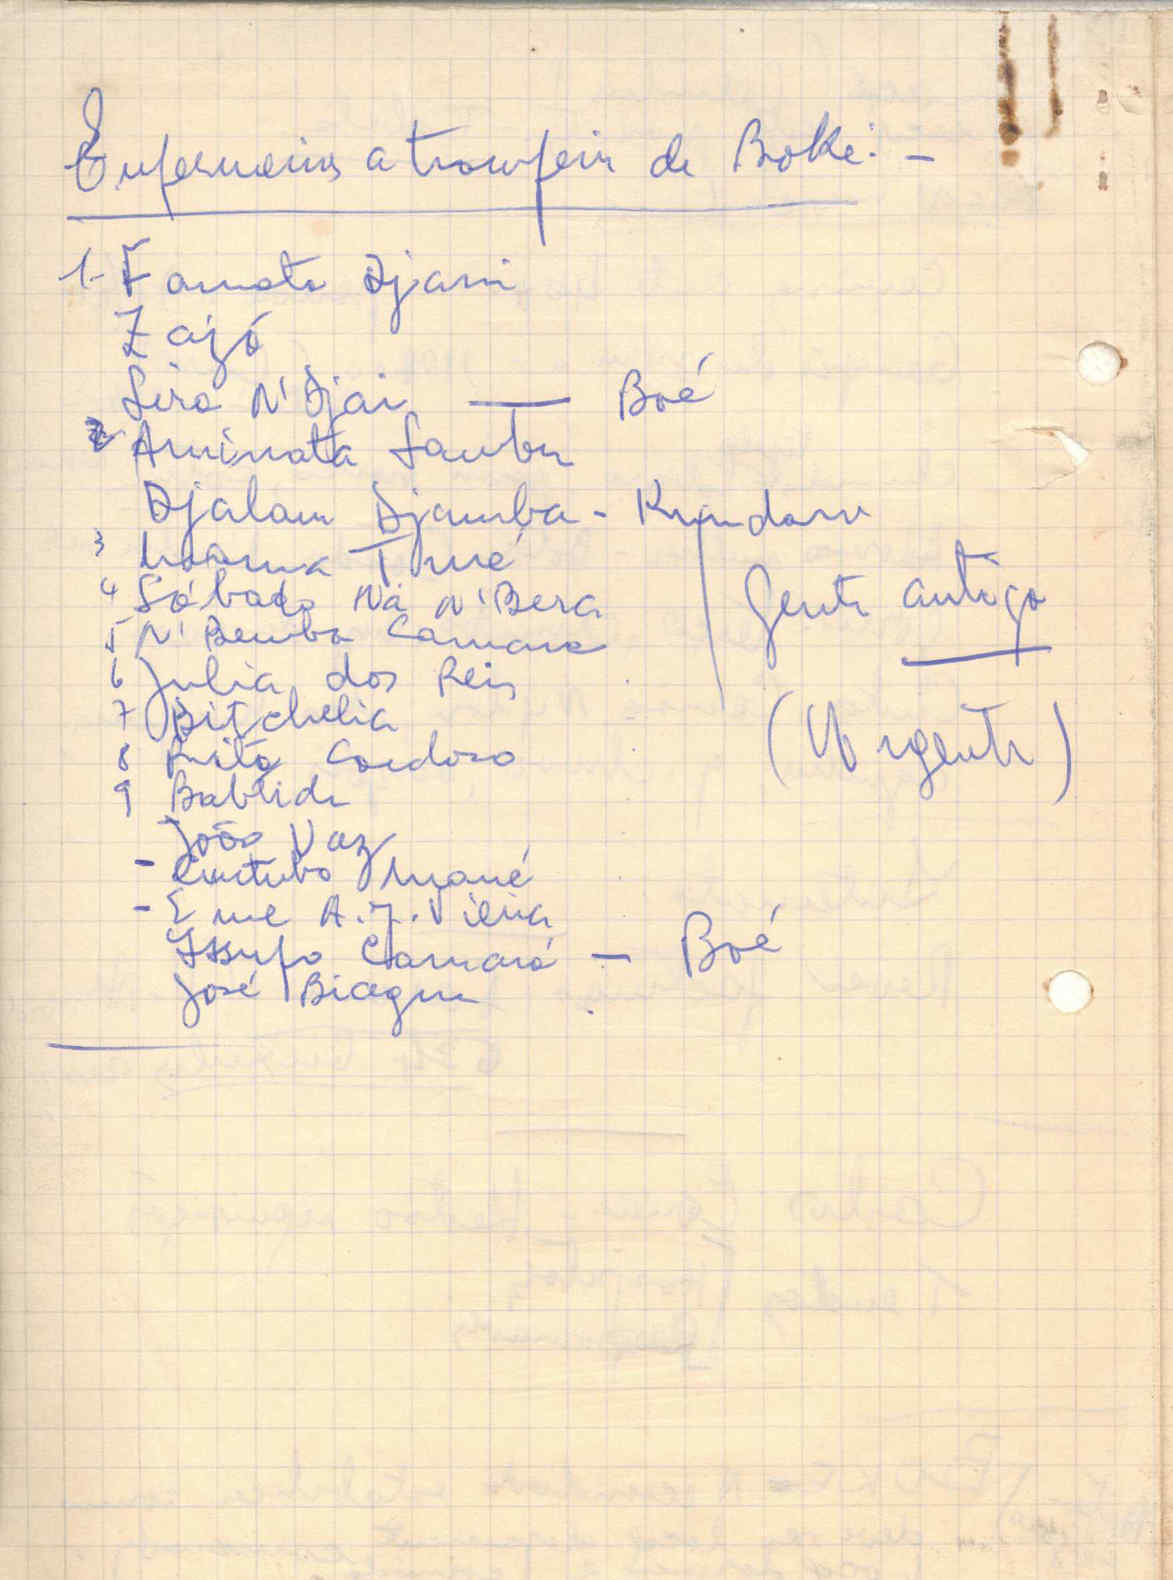 Enfermeiros a transferir de Boké: -
1- Famata Djani
Zajó
Sira N'Djai — Boé
2 Aminata Sambu
Djalam Djamba - Kundara
3 Mané
4 Sábado Na N'Bera
5 N'Bemba Camara
6 Julia dos Reis
7 Bitchelia
8 Rita Cardoso
9 Bablide
João Vaz
- Mané
- Eme A. J. Vieira
Issufo Camará — Boé
José Biagu
Gente antiga
(Urgente)